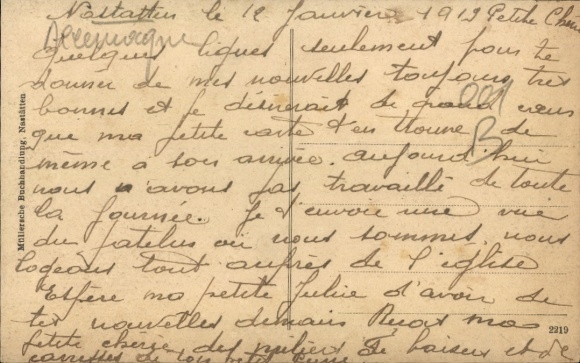 Nastatten le 12 Janvier 1919 Petite Cherie
Allemagne
quelques lignes seulement pour te
donner de mes nouvelles toujours très
bonnes et je désirerait de grand cœur
que ma petite carte t'en trouve de
même à son arrivée. aujourd'hui
nous n'avons pas travaillé de toute
la journée. Je t'envoie une vue
du patelin où nous sommes. nous
logeons tout auprès de l'église
Espère ma petite Julie d'avoir de
tes nouvelles demain Reçois ma
petite chérie des milliers de baisers et de
caresses de ton petit
Müllersche Buchhandlung, Nastätten
2219